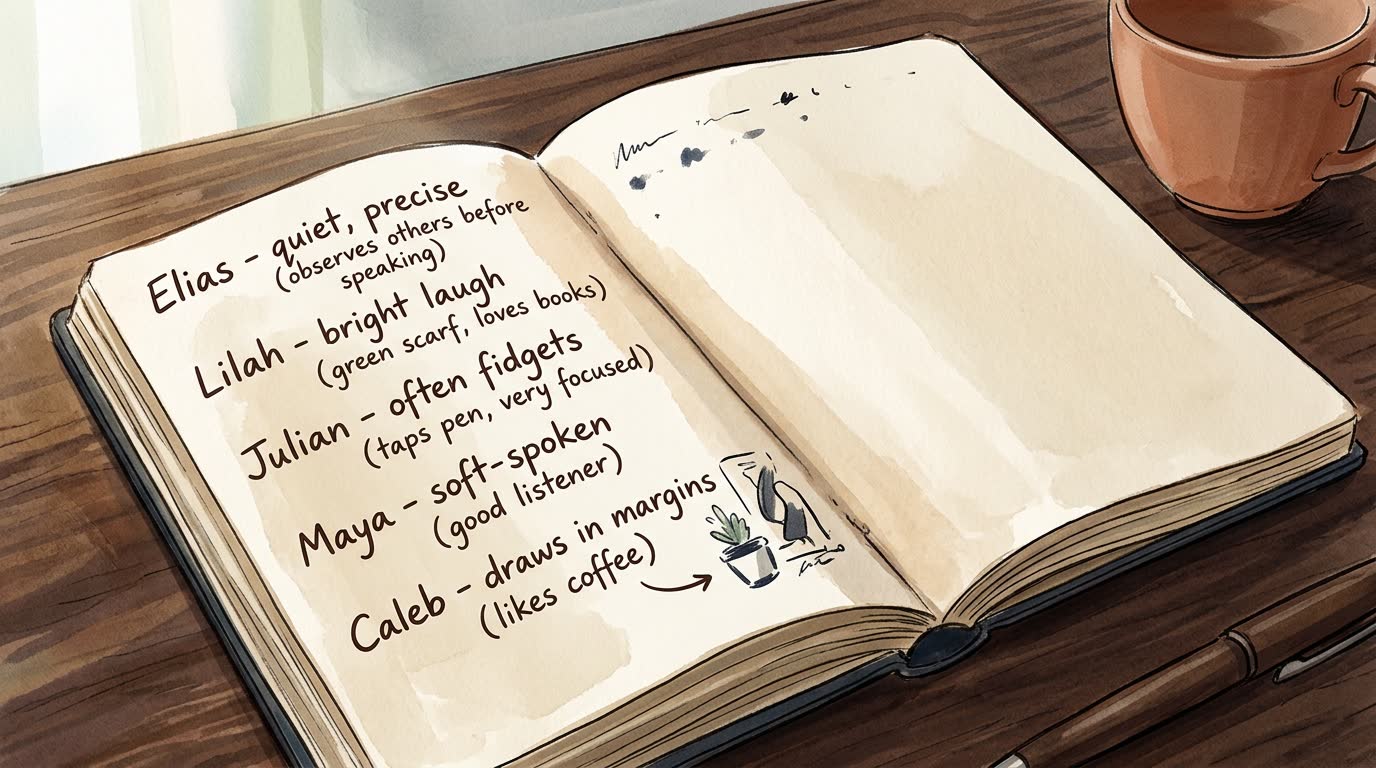 Elias - quiet, precise
(observes others before
speaking)
Lilah - bright laugh
(green scarf, loves books)
Julian - often fidgets
(taps pen, very focused)
Maya - soft-spoken
(good listener)
Caleb - draws in margins
(likes coffee)